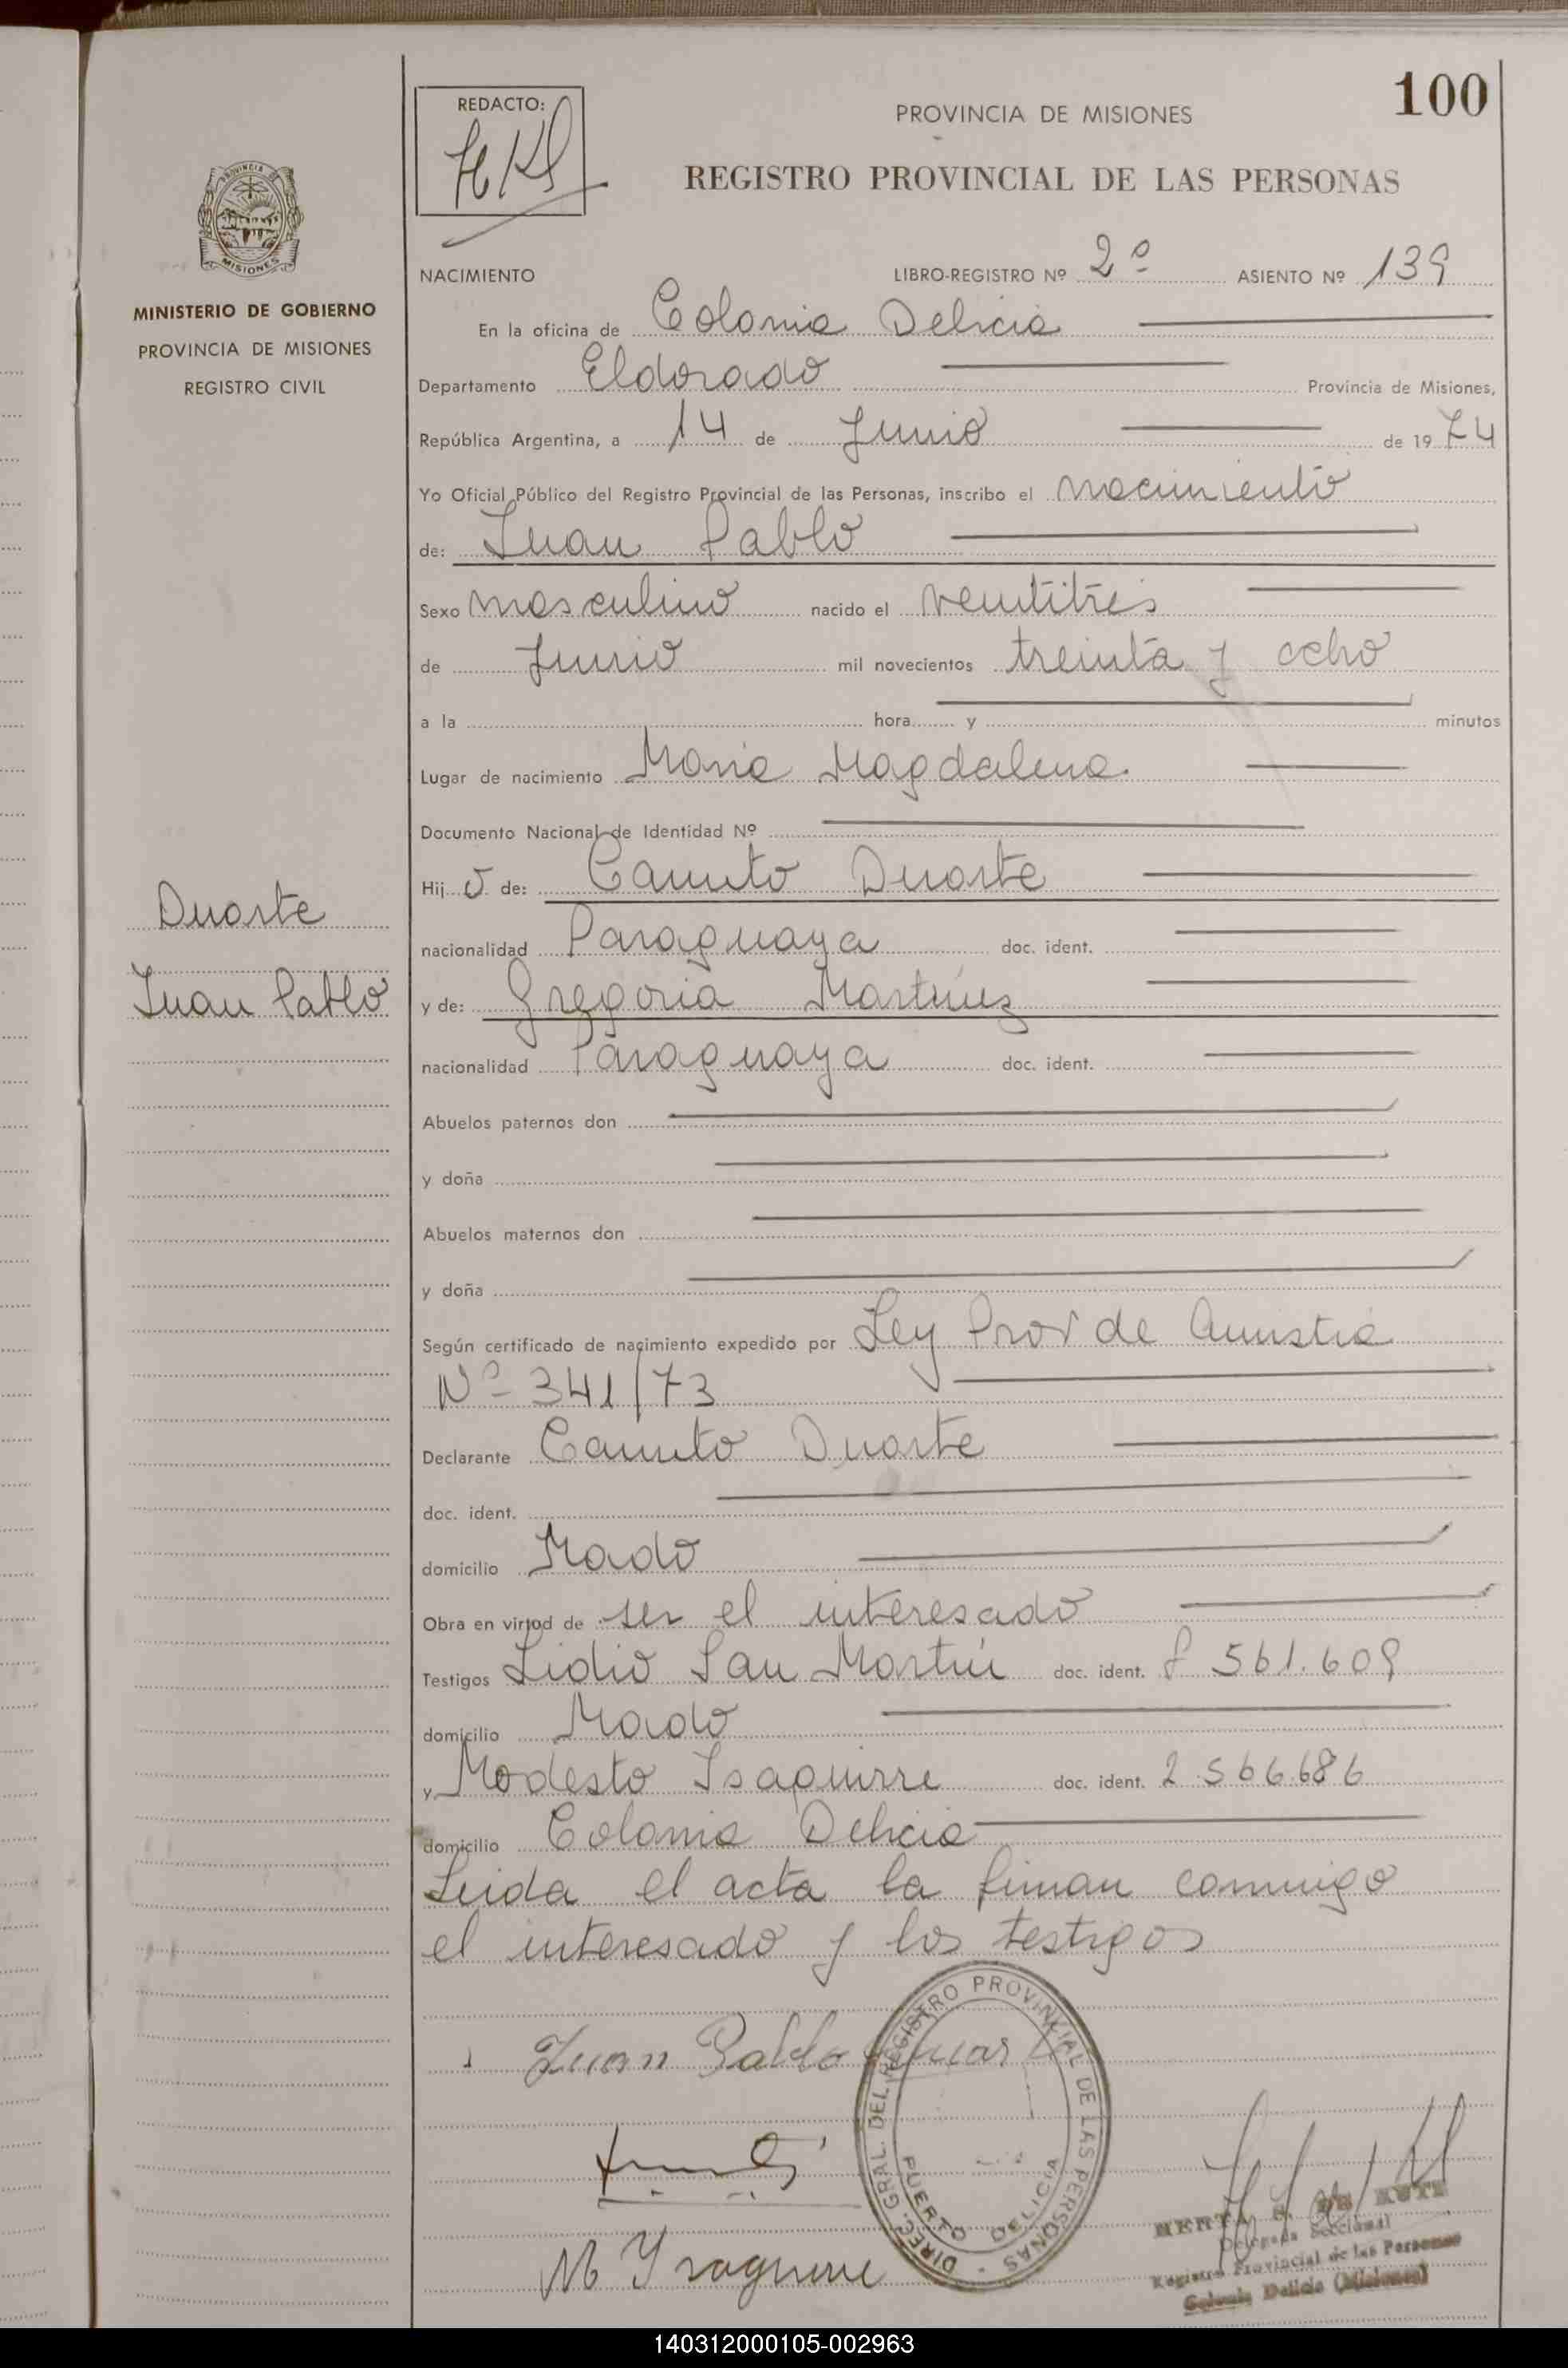 100
REDACTO:
PROVINCIA DE MISIONES
REGISTRO PROVINCIAL DE LAS PERSONAS
PROVINCIA DE
MISIONES
MINISTERIO DE GOBIERNO
PROVINCIA DE MISIONES
REGISTRO CIVIL
NACIMIENTO LIBRO-REGISTRO Nº 2º ASIENTO Nº 139
En la oficina de Colonia Delicia
Departamento Eldorado Provincia de Misiones,
República Argentina, a 14 de Junio de 1974
Yo Oficial Público del Registro Provincial de las Personas, inscribo el nacimiento
de: Juan Pablo
Sexo masculino nacido el veintitres
de Junio mil novecientos treinta y ocho
a la hora y minutos
Lugar de nacimiento Maria Magdalena
Documento Nacional de Identidad Nº
Hijo de: Canuto Duarte
Duarte
nacionalidad Paraguaya doc. ident.
Juan Pablo
y de: Gregoria Martinez
nacionalidad Paraguaya doc. ident.
Abuelos paternos don
y doña
Abuelos maternos don
y doña
Según certificado de nacimiento expedido por Ley Prov de Amnistia
Nº 341/73
Declarante Canuto Duarte
doc. ident.
domicilio Mado
Obra en virtud de ser el interesado
Testigos Lidio San Martin doc. ident. 561.609
domicilio Mado
y Modesto Isaguirre doc. ident. 2.566.686
domicilio Colonia Delicia
Leida el acta la firman conmigo
el interesado y los testigos
Juan Pablo Duarte
DIREC. GRAL. DEL REGISTRO PROVINCIAL DE LAS PERSONAS
PUERTO DELICIA
M Ysaguirre
Delegada Seccional
Registro Provincial de las Personas
Colonia Delicia (Misiones)
140312000105-002963